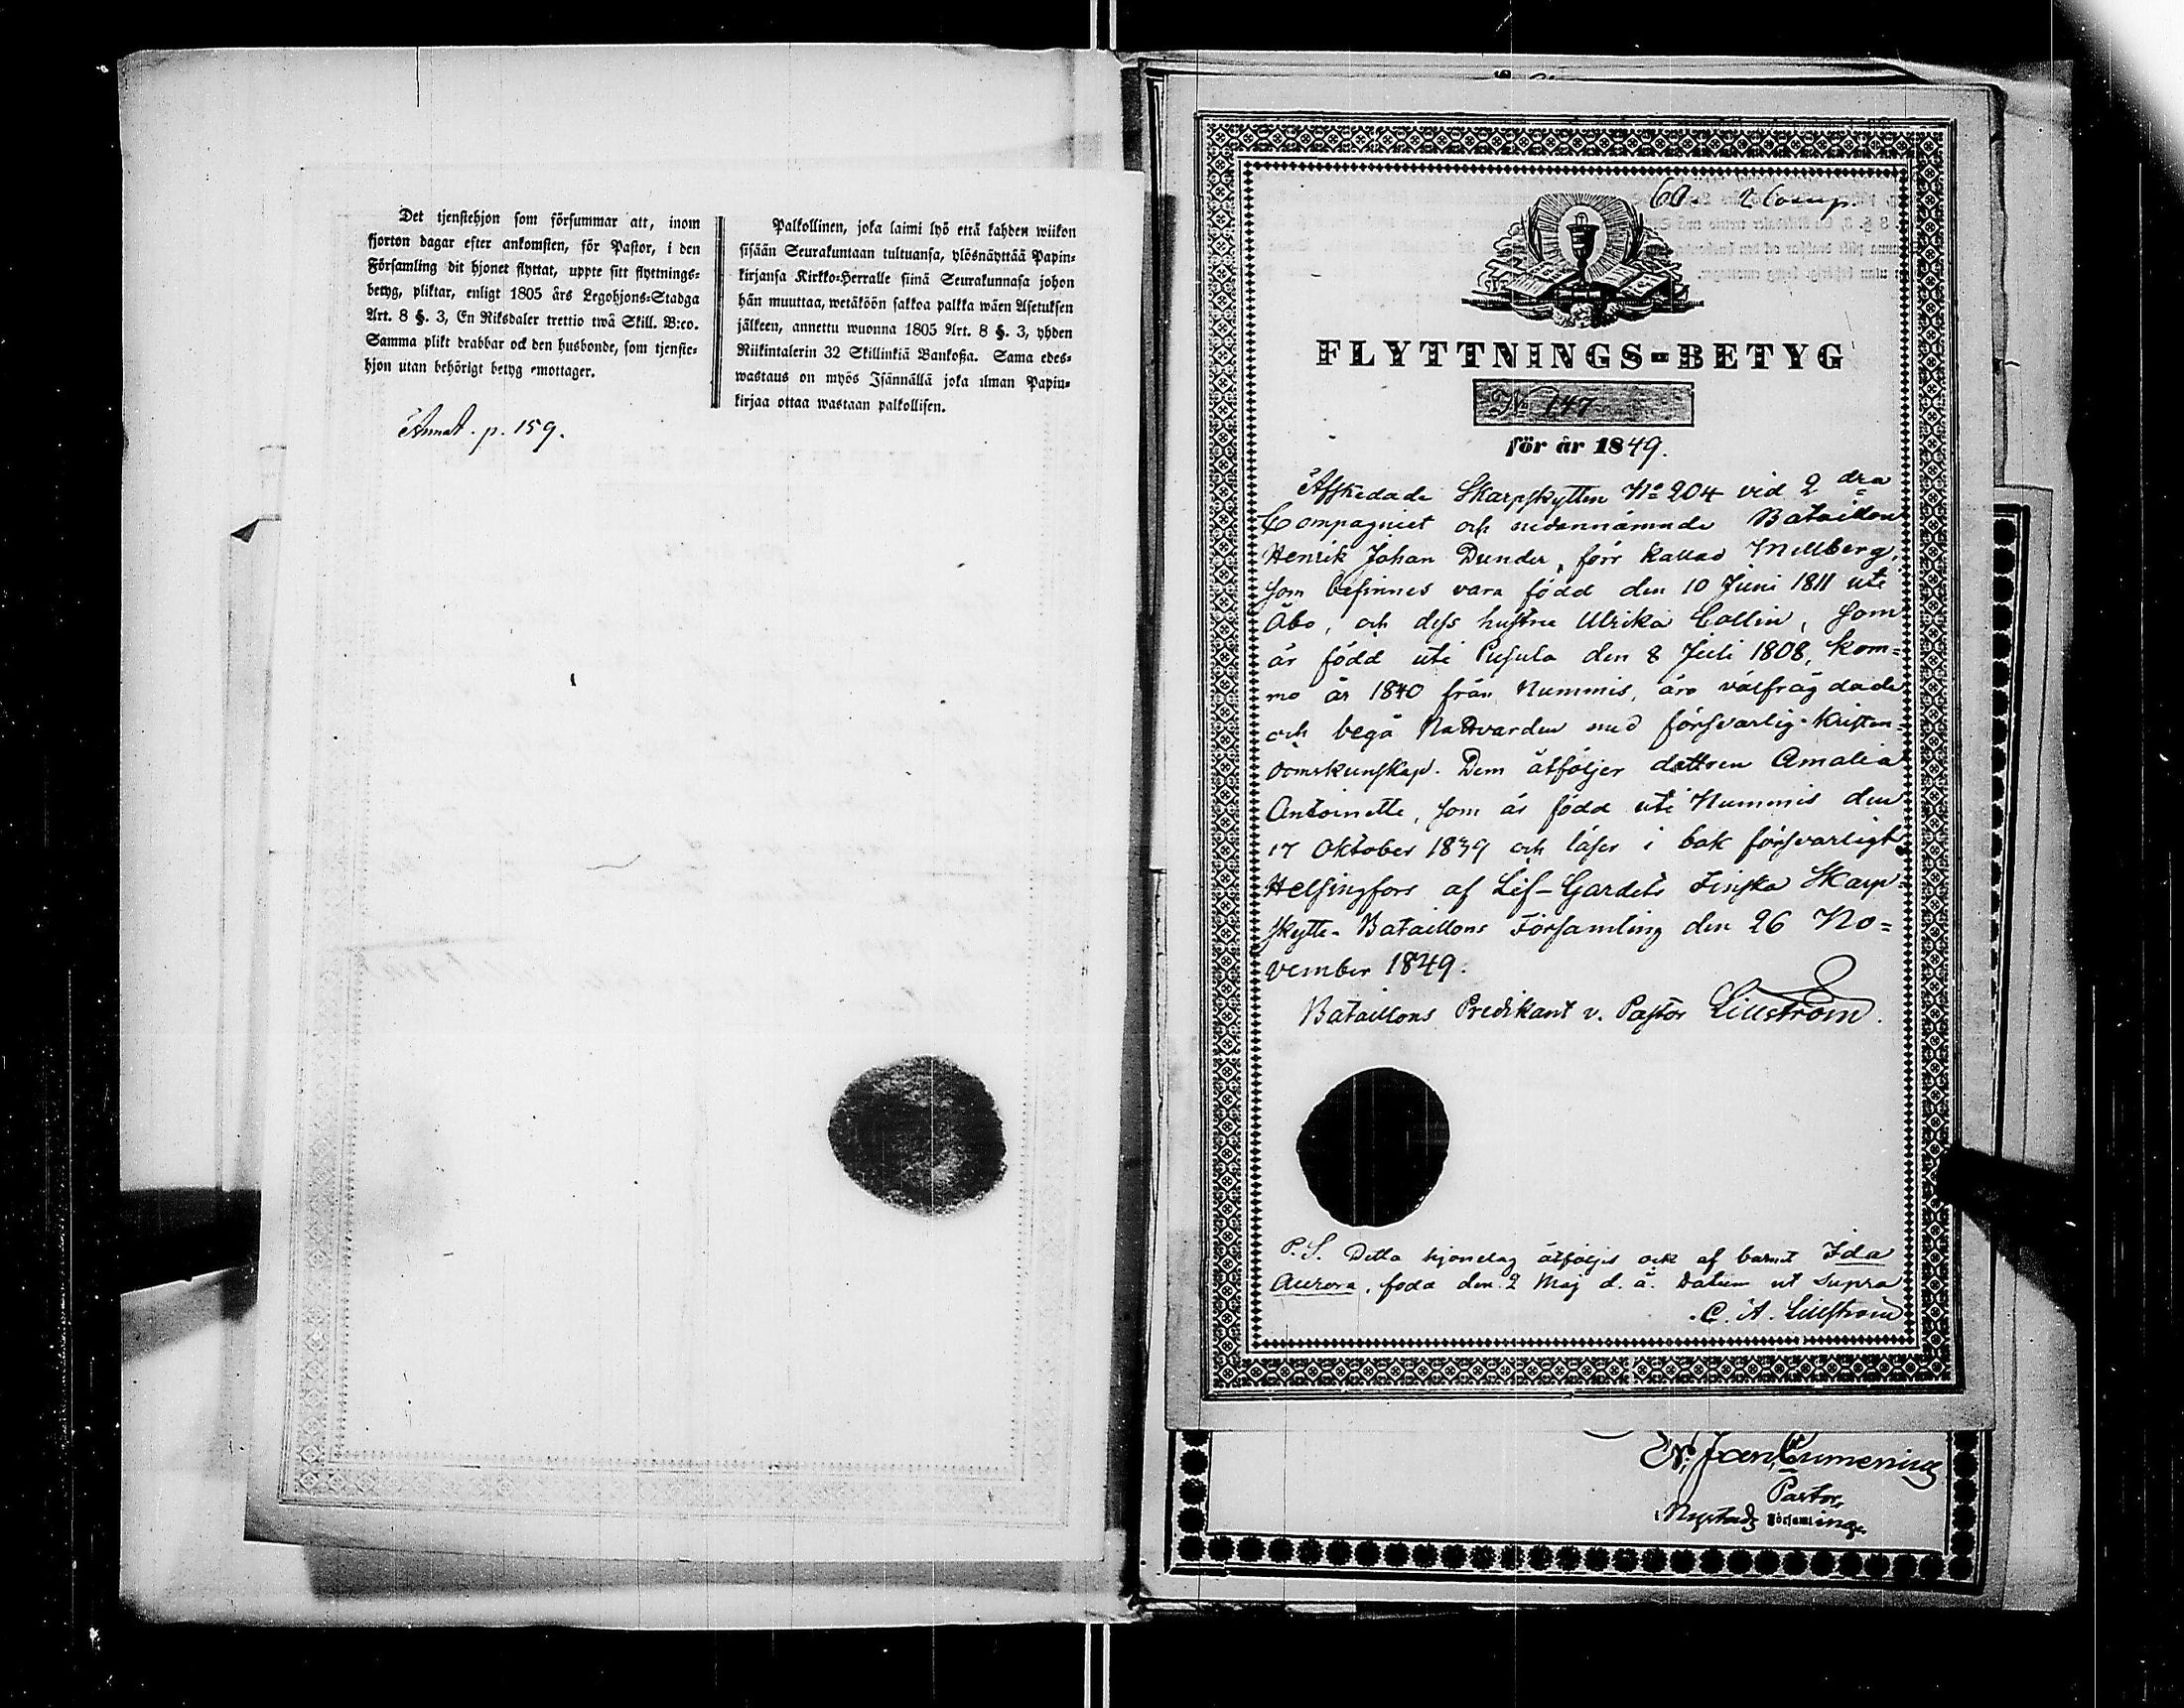 Det tjenstehjon som försummar att, inom
fjorton dagar efter ankomsten, för Pastor, i den
Församling dit hjonet flyttat, uppte sitt flyttnings=
betyg, pliktar, enligt 1805 års Legohjons=Stadga
Art. 8 §. 3, En Riksdaler trettio twå Skill. B:co.
Samma plikt drabbar ock den husbonde, som tjenste=
hjon utan behörigt betyg emottager.
Palkollinen, joka laimi lyö että kahden wiikon
sisään Seurakuntaan tultuansa, ylösnäyttää Papin=
kirjansa Kirkko=Herralle siinä Seurakunnasa johon
hän muuttaa, wetäköön sakkoa palkka wäen Asetuksen
jälkeen, annettu wuonna 1805 Art. 8 §. 3, yhden
Riikintalerin 32 Skillinkiä Bankoßa. Sama edes=
wastaus on myös Isännällä joka ilman Papin=
kirjaa ottaa wastaan palkollisen.
Annot. p. 159.
60. 2 Comp.
FLYTTNINGS=BETYG
No 147
för år 1849.
Afskedade Skarpskytten No 204 vid 2 dra
Compagniet och nedannämnde Bataillon
Henrik Johan Dunder, förr kallad Millberg,
som befinnes vara född den 10 Juni 1811 uti
Åbo, och dess hustru Ulrika Collin, som
är född uti Pusula den 8 Juli 1808, kom=
mo år 1840 från Nummis, äro välfrägdade
och begå Nattvarden med försvarlig Kristen=
domskunskap. Dem åtföljer dottren Amalia
Antoinette, som är född uti Nummis den
17 Oktober 1839 och läser i bok försvarligt.
Helsingfors af Lif-Gardets Finska Skarp=
skytte-Bataillons Församling den 26 No=
vember 1849.
Bataillons Predikant v. Pastor Lillström.
P.S. Detta hjonelag åtföljes ock af barnet Ida
Aurora, född den 2 Maj d. å. Datum ut supra
C. A. Lillström
Pastor
Nystads Församlings